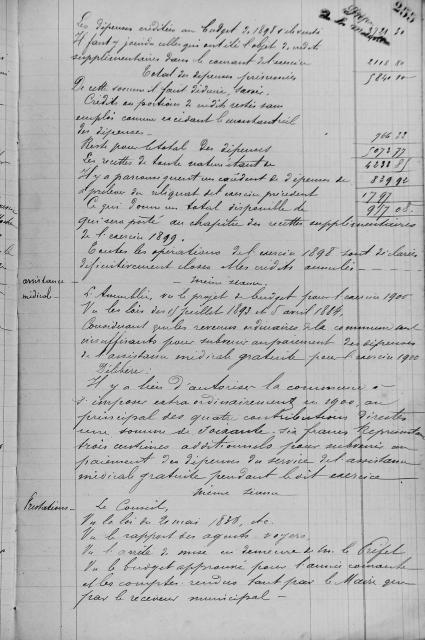 255
Les dépenses créditées au budget de 1898
Il faut y joindre celles qui ont été l'objet de crédits
supplémentaires dans le courant de l'exercice
Total des dépenses présumées
De cette somme il faut déduire, savoir:
Crédits ou portions de crédits restés sans
emploi comme excédant le montant réel
des dépenses
Reste pour le total des dépenses
Les recettes de toute nature étant de
Il y a par conséquent un excédent de dépenses de
à prélever du reliquat de l'exercice précédent
Ce qui donne un total disponible de
qui sera porté au chapitre des recettes supplémentaires
de l'exercice 1899.
Toutes les opérations de l'exercice 1898 sont déclarées
définitivement closes et les crédits annulés
même séance
assistance
médicale
L'Assemblée, vu le projet de budget pour l'exercice 1900
Vu les lois des 15 juillet 1893 et 5 avril 1884.
Considérant que les revenus ordinaires de la commune sont
insuffisants pour subvenir au paiement des dépenses
de l'assistance médicale gratuite pour l'exercice 1900
Délibère:
Il y a lieu d'autoriser la commune à
s'imposer extraordinairement en 1900, au
principal des quatre contributions directes
une somme de soixante dix francs représentant
trois centimes additionnels pour subvenir au
paiement des dépenses du service de l'assistance
médicale gratuite pendant ledit exercice
même séance
Prestations
Le Conseil,
Vu la loi du 20 mai 1836, etc.
Vu le rapport des agents voyers,
Vu l'arrêté de mise en demeure de M. le Préfet
Vu le budget approuvé pour l'année courante
et les comptes rendus tant par le Maire que
par le receveur municipal